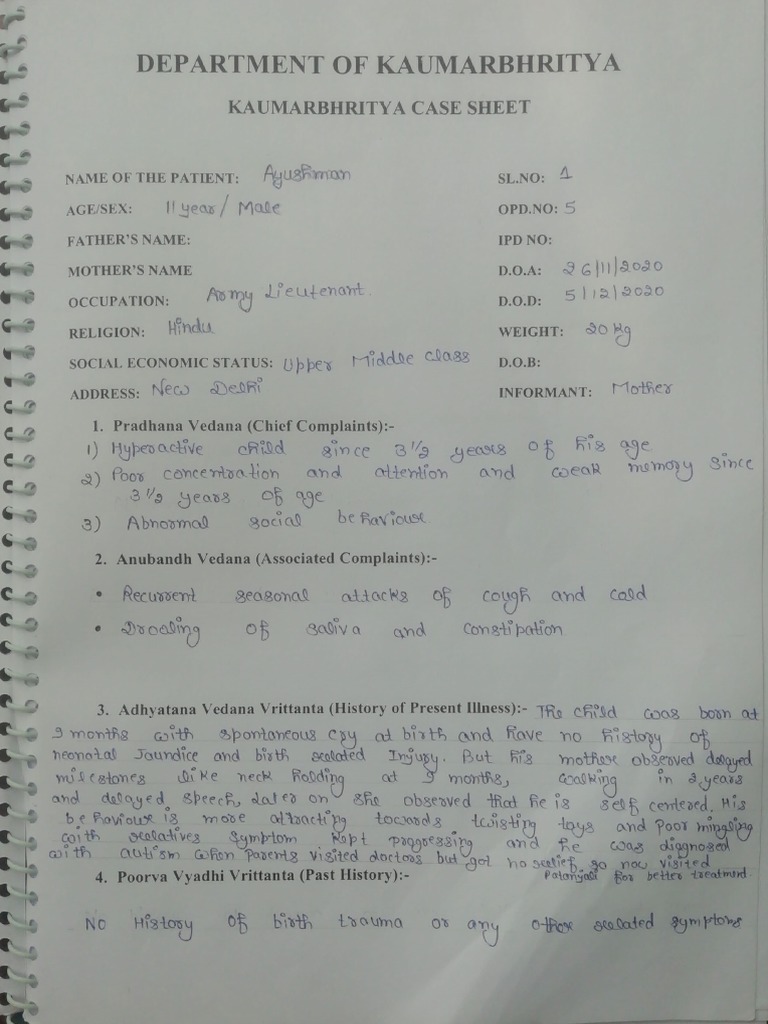 DEPARTMENT OF KAUMARBHRITYA
KAUMARBHRITYA CASE SHEET
NAME OF THE PATIENT: Ayushman SL.NO: 1
AGE/SEX: 11 year/ Male OPD.NO: 5
FATHER'S NAME: IPD NO:
MOTHER'S NAME D.O.A: 26/11/2020
OCCUPATION: Army Lieutenant. D.O.D: 5/12/2020
RELIGION: Hindu WEIGHT: 20 kg
SOCIAL ECONOMIC STATUS: Upper Middle class D.O.B:
ADDRESS: New Delhi INFORMANT: Mother
1. Pradhana Vedana (Chief Complaints):-
1) Hyperactive child since 3 1/2 years of his age
2) Poor concentration and attention and weak memory since
3 1/2 years of age
3) Abnormal social behaviour.
2. Anubandh Vedana (Associated Complaints):-
• Recurrent seasonal attacks of cough and cold
• Drooling of saliva and constipation
3. Adhyatana Vedana Vrittanta (History of Present Illness):- The child was born at
9 months with spontaneous cry at birth and have no history of
neonatal Jaundice and birth related Injury. But his mother observed delayed
milestones like neck holding at 9 months, walking in 2 years
and delayed speech, Later on she observed that he is self centered. His
behaviour is more attracting towards twisting toys and poor mingling
with relatives symptom kept progressing and he was diagnosed
with autism when parents visited doctors but got no relief so now visited
Patanjali for better treatment.
4. Poorva Vyadhi Vrittanta (Past History):-
No History of birth trauma or any other related symptoms